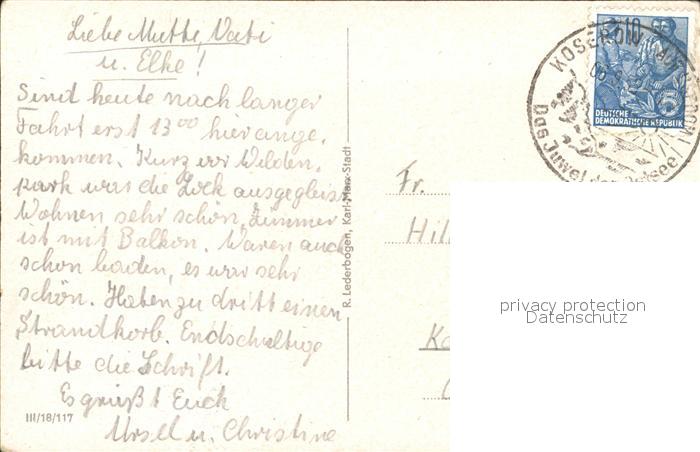 Liebe Mutti, Vati
u. Elke!
Sind heute nach langer
Fahrt erst 13⁰⁰ hier ange-
kommen. Kurz vor Wilden-
park war die Lok ausgegleist
Wohnen sehr schön, Zimmer
ist mit Balkon. Waren auch
schon baden, es war sehr
schön. Haben zu dritt einen
Strandkorb. Endschultige
bitte die Schrift.
Es grüßt Euch
Ursel u. Christine
III/18/117
R. Lederbogen, Karl-Marx-Stadt
KOSEROW AUF USEDOM
Das Juwel der Ostsee
10
5
DEUTSCHE
DEMOKRATISCHE REPUBLIK
Fr.
Hil
privacy protection
Datenschutz